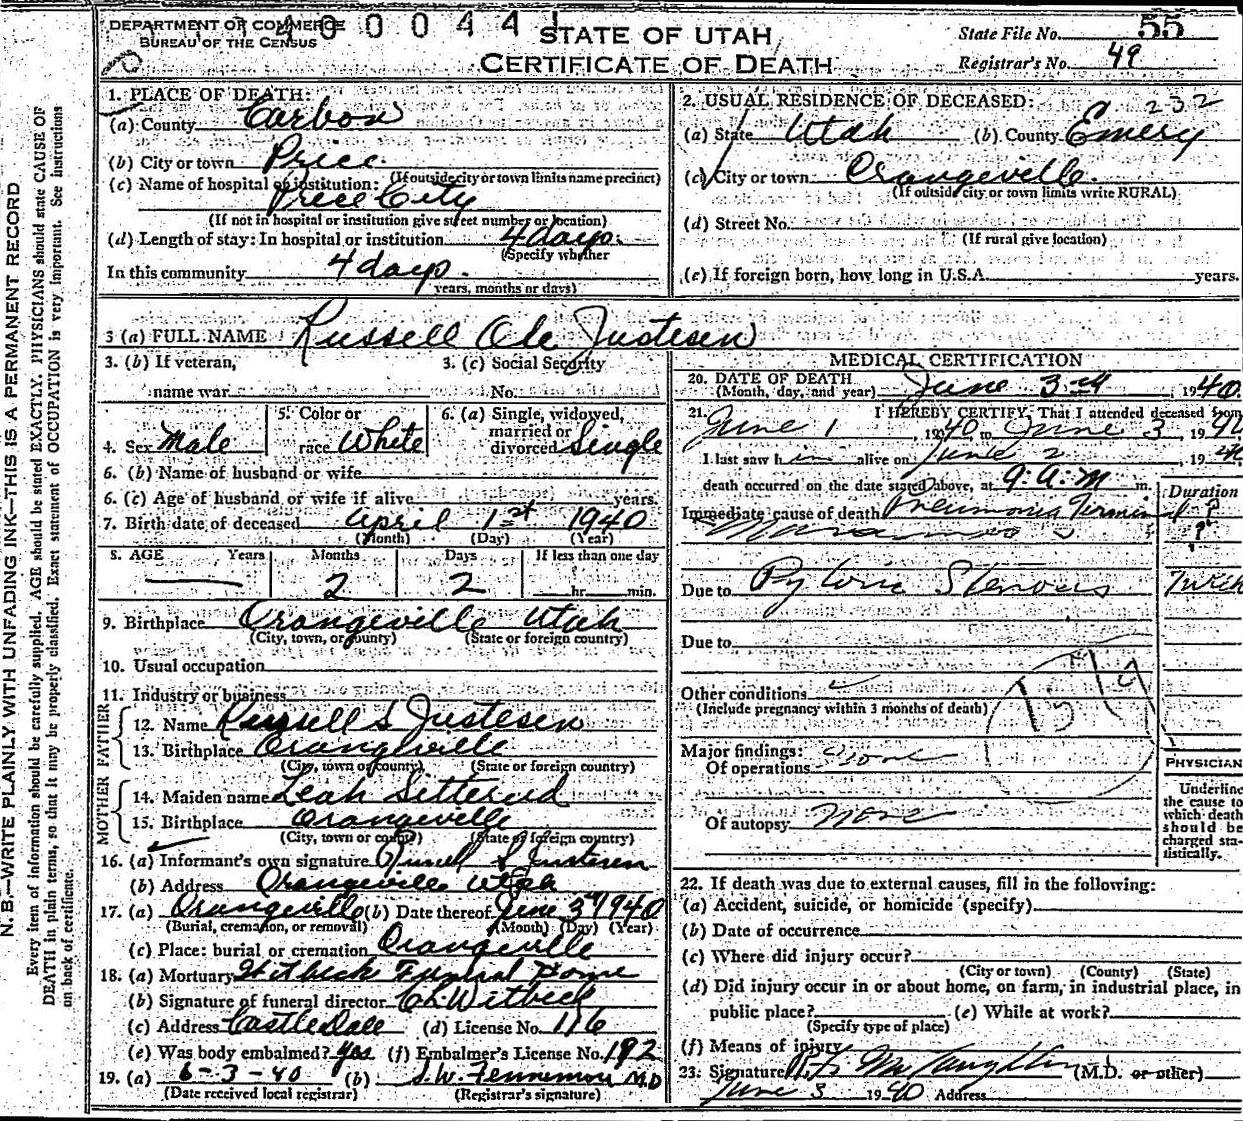 DEPARTMENT OF COMMERCE
BUREAU OF THE CENSUS
400044
STATE OF UTAH
CERTIFICATE OF DEATH
State File No. 55
Registrar's No. 49
1. PLACE OF DEATH:
(a) County Carbon
(b) City or town Price
(If outside city or town limits name precinct)
(c) Name of hospital or institution:
Price City
(If not in hospital or institution give street number or location)
(d) Length of stay: In hospital or institution 4 days.
(Specify whether
In this community 4 days.
years, months or days)
2. USUAL RESIDENCE OF DECEASED: 232
(a) State Utah (b) County Emery
(c) City or town Orangeville.
(If outside city or town limits write RURAL)
(d) Street No.
(If rural give location)
(e) If foreign born, how long in U.S.A. years.
3 (a) FULL NAME Russell Ole Justesen
3. (b) If veteran,
name war
3. (c) Social Security
No.
4. Sex Male
5. Color or
race White
6. (a) Single, widowed,
married or
divorced Single
6. (b) Name of husband or wife
6. (c) Age of husband or wife if alive years.
7. Birth date of deceased April 1st 1940
(Month) (Day) (Year)
8. AGE Years Months Days If less than one day
— 2 2 hr. min.
9. Birthplace Orangeville Utah
(City, town, or county) (State or foreign country)
10. Usual occupation
11. Industry or business
FATHER
12. Name Russell S Justesen
13. Birthplace Orangeville
(City, town or county) (State or foreign country)
MOTHER
14. Maiden name Leah Sitterud
15. Birthplace Orangeville
(City, town or county) (State or foreign country)
16. (a) Informant's own signature Russell S Justesen
(b) Address Orangeville Utah
17. (a) Orangeville (b) Date thereof June 3rd 1940
(Burial, cremation, or removal) (Month) (Day) (Year)
(c) Place: burial or cremation Orangeville
18. (a) Mortuary Witbeck Funeral Home
(b) Signature of funeral director Ch. Witbeck
(c) Address Castle Dale (d) License No. 116
(e) Was body embalmed? Yes (f) Embalmer's License No. 192
19. (a) 6-3-40 (b) S.W. Fennemore M.D
(Date received local registrar) (Registrar's signature)
MEDICAL CERTIFICATION
20. DATE OF DEATH
(Month, day, and year) June 3rd, 1940.
21. I HEREBY CERTIFY, That I attended deceased from
June 1, 1940, to June 3, 1940
I last saw him alive on June 2, 19
death occurred on the date stated above, at 9. A. M m.
Duration
Immediate cause of death Pneumonia Terminal ?
?
Due to Pyloric Stenosis
Due to
Other conditions
(Include pregnancy within 3 months of death)
Major findings:
Of operations
Of autopsy none
PHYSICIAN
Underline
the cause to
which death
should be
charged sta-
tistically.
22. If death was due to external causes, fill in the following:
(a) Accident, suicide, or homicide (specify)
(b) Date of occurrence
(c) Where did injury occur?
(City or town) (County) (State)
(d) Did injury occur in or about home, on farm, in industrial place, in
public place? (e) While at work?
(Specify type of place)
(f) Means of injury
23. Signature (M.D. or other)
June 3 1940 Address
N. B.—WRITE PLAINLY WITH UNFADING INK—THIS IS A PERMANENT RECORD
Every item of information should be carefully supplied. AGE should be stated EXACTLY. PHYSICIANS should state CAUSE OF
DEATH in plain terms, so that it may be properly classified. Exact statement of OCCUPATION is very important. See instructions
on back of certificate.